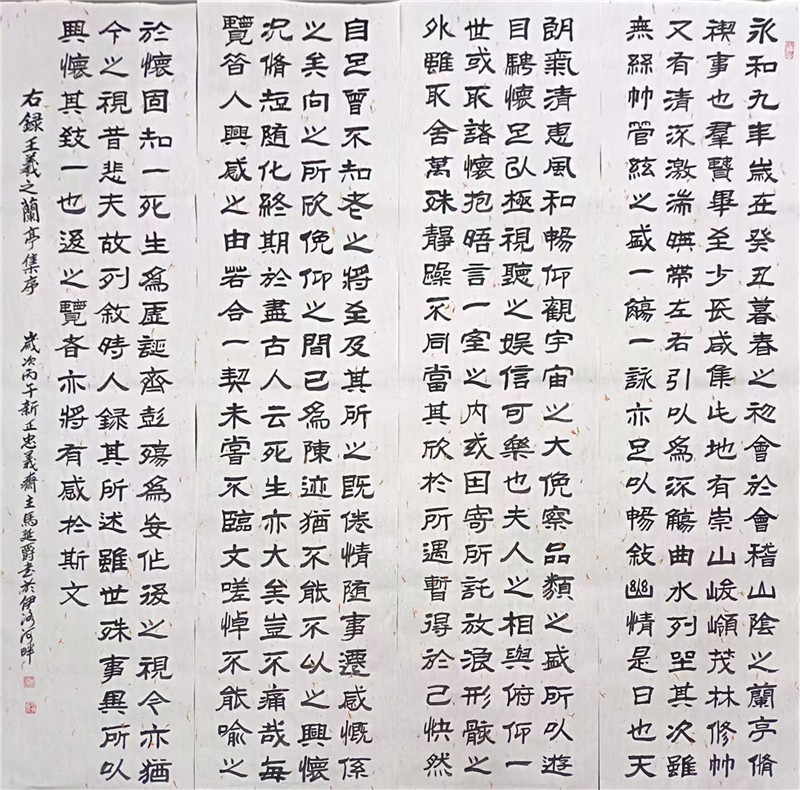 永和九年歲在癸丑暮春之初會於會稽山陰之蘭亭脩
禊事也羣賢畢至少長咸集此地有崇山峻嶺茂林修竹
又有清流激湍暎帶左右引以爲流觴曲水列坐其次雖
無絲竹管絃之盛一觴一詠亦足以暢敍幽情是日也天
朗氣清惠風和暢仰觀宇宙之大俛察品類之盛所以遊
目騁懷足以極視聽之娱信可樂也夫人之相與俯仰一
世或取諸懷抱晤言一室之内或因寄所託放浪形骸之
外雖取舍萬殊靜躁不同當其欣於所遇暫得於己快然
自足曾不知老之將至及其所之既倦情隨事遷感慨係
之矣向之所欣俛仰之間已爲陳迹猶不能不以之興懷
況脩短隨化終期於盡古人云死生亦大矣豈不痛哉每
覽昔人興感之由若合一契未嘗不臨文嗟悼不能喻之
於懷固知一死生爲虛誕齊彭殤爲妄作後之視今亦猶
今之視昔悲夫故列敘時人録其所述雖世殊事異所以
興懷其致一也後之覽者亦將有感於斯文
右録王羲之蘭亭集序 歲次丙午新正忠義齋主馬延爵書於伊洛河畔